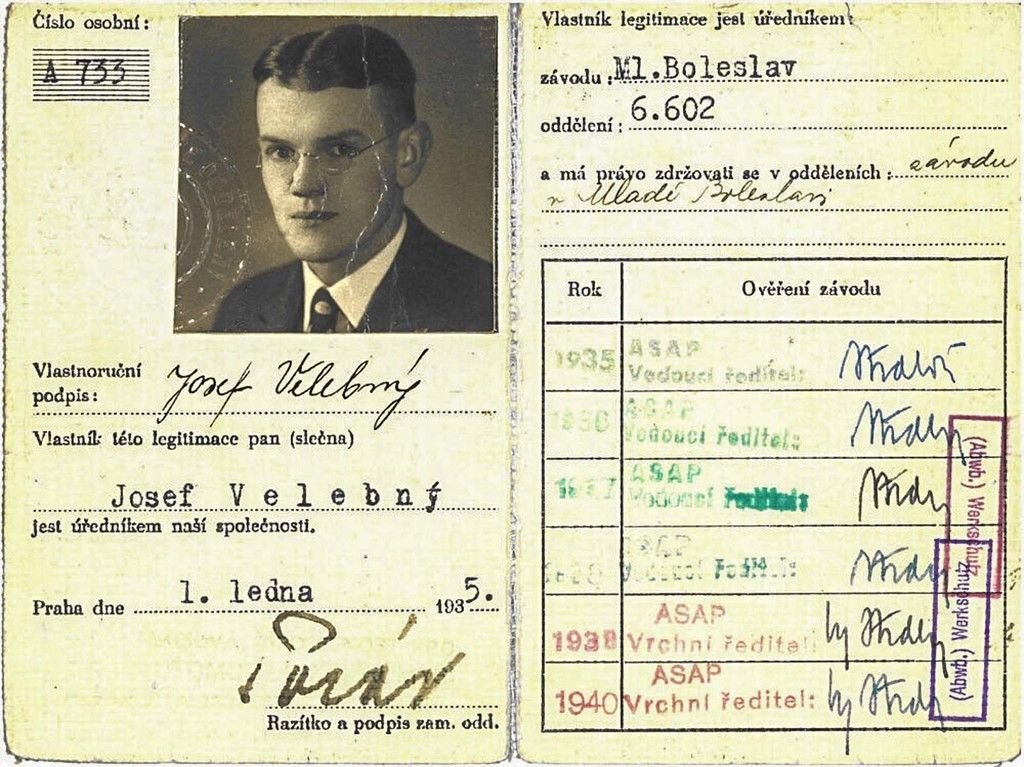 Číslo osobní:
A 733
Vlastnoruční
podpis:
Josef Velebný
Vlastník této legitimace pan (slečna)
Josef Velebný
jest úředníkem naší společnosti.
Praha dne 1. ledna 1935.
Razítko a podpis zam. odd.
Vlastník legitimace jest úředníkem:
závodu: Ml.Boleslav
oddělení: 6.602
a má právo zdržovati se v odděleních: závodu
v Mladé Boleslavi
Rok Ověření závodu
1935 ASAP
Vedoucí ředitel:
ASAP
Vedoucí ředitel:
1937 ASAP
Vedoucí ředitel:
ASAP
Vedoucí ředitel:
ASAP
Vrchní ředitel:
1940 ASAP
Vrchní ředitel:
(Abwb.) Werkschutz
(Abwb.) Werkschutz